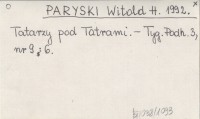 PARYSKI Witold H. 1992.
Tatarzy pod Tatrami. – Tyg. Podh. 3,
nr 9 i 6.